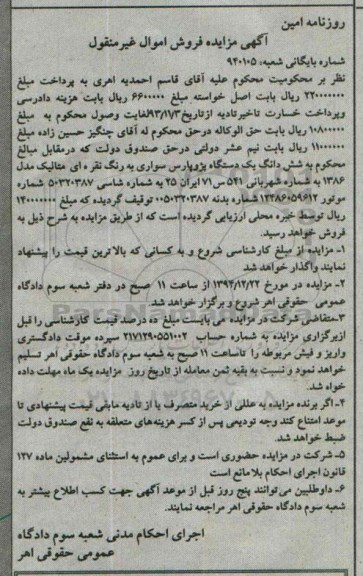 روزنامه امین
آگهی مزایده فروش اموال غیرمنقول
شماره بایگانی شعبه: ۹۴۰۱۰۵
نظر بر محکومیت محکوم علیه آقای قاسم احمدیه اهری به پرداخت مبلغ
۲۲۰۰۰۰۰۰۰ ریال بابت اصل خواسته مبلغ ۶۶۰۰۰۰۰ ریال بابت هزینه دادرسی
وپرداخت خسارت تاخیرتادیه ازتاریخ ۹۳/۱۱/۳ لغایت وصول محکوم به مبلغ
۱۰۸۰۰۰۰۰ ریال بابت حق الوکاله درحق محکوم له آقای چنگیز حسین زاده مبلغ
۱۱۰۰۰۰۰۰ ریال بابت نیم عشر دولتی درحق صندوق دولت که درمقابل مبالغ
محکوم به شش دانگ یک دستگاه پژوپارس سواری به رنگ نقره ای متالیک مدل
۱۳۸۶ به شماره شهربانی ۵۴۱ س ۷۱ ایران ۲۵ به شماره شاسی ۵۰۳۲۰۳۸۷ شماره
موتور ۱۲۳۸۶۰۵۹۶۱۲ شماره بدنه ۰۰۵۰۳۲۰۳۸۷ توقیف گردیده که مبلغ ۱۴۰۰۰۰۰۰۰
ریال توسط خبره محلی ارزیابی گردیده است که از طریق مزایده به شرح ذیل به
فروش خواهد رسید.
۱- مزایده از مبلغ کارشناسی شروع و به کسانی که بالاترین قیمت را پیشنهاد
نمایند واگذار خواهد شد
۲- مزایده در مورخ ۱۳۹۴/۱۲/۲۲ از ساعت ۱۱ صبح در دفتر شعبه سوم دادگاه
عمومی حقوقی اهر شروع و برگزار خواهد شد.
۳- متقاضی شرکت در مزایده می بایست مبلغ ده درصد قیمت کارشناسی را قبل
ازبرگزاری مزایده به شماره حساب ۲۱۷۱۲۹۰۵۵۱۰۰۲ سپرده موقت دادگستری
واریز و فیش مربوطه را تاساعت ۱۱ صبح به شعبه سوم دادگاه حقوقی اهر تسلیم
خواهد نمود و نسبت به بقیه ثمن معامله از تاریخ روز مزایده یک ماه مهلت داده
خواه شد.
۴- اگر برنده مزایده به عللی از خرید متصرف یا از تادیه مابقی قیمت پیشنهادی تا
موعد امتناع کند وجه تودیعی پس از کسر هزینه‌های متعلقه به نفع صندوق دولت
ضبط خواهد شد.
۵- شرکت در مزایده حضوری است و برای عموم به استثنای مشمولین ماده ۱۲۷
قانون اجرای احکام بلامانع است
۶- داوطلبین می توانند پنج روز قبل از موعد آگهی جهت کسب اطلاع بیشتر به
شعبه سوم دادگاه حقوقی اهر مراجعه نمایند.
اجرای احکام مدنی شعبه سوم دادگاه
عمومی حقوقی اهر